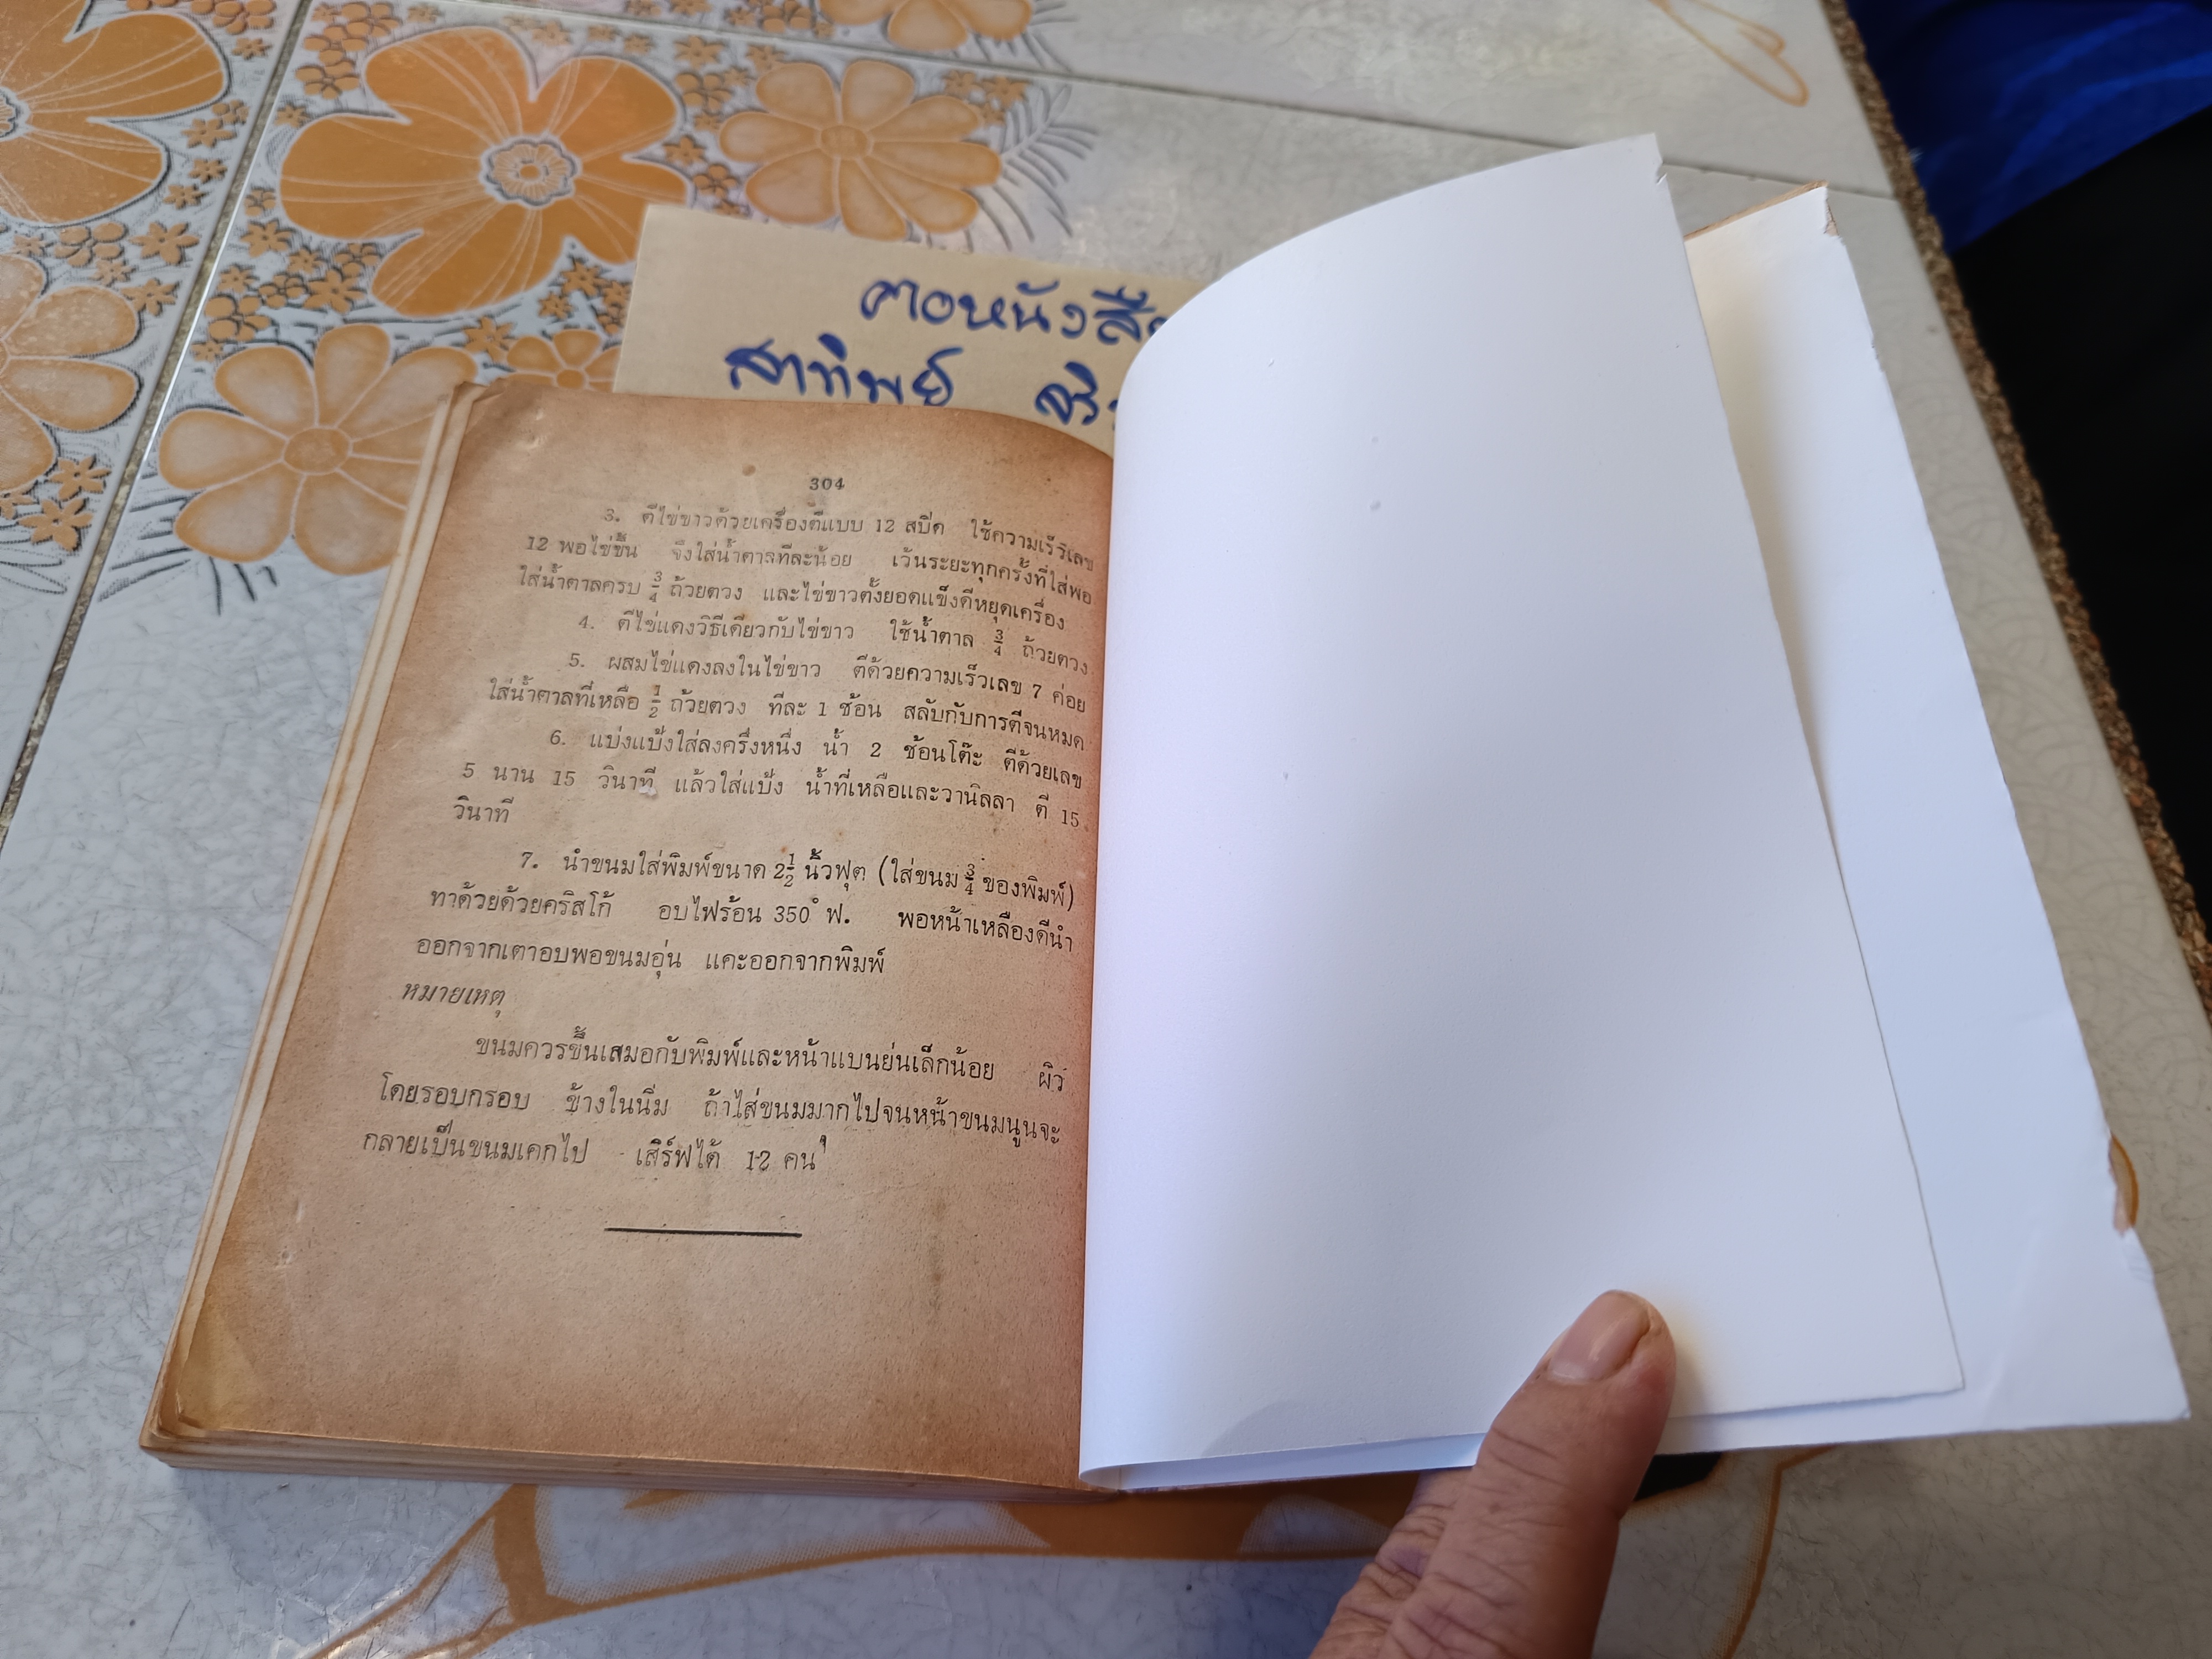 คอหนังสือ
สาทิพย์
304
3. ตีไข่ขาวด้วยเครื่องตีแบบ 12 สปีด ใช้ความเร็วเลข
12 พอไข่ขึ้น จึงใส่น้ำตาลทีละน้อย เว้นระยะทุกครั้งที่ใส่พอ
ใส่น้ำตาลครบ 3/4 ถ้วยตวง และไข่ขาวตั้งยอดแข็งดีหยุดเครื่อง
4. ตีไข่แดงวิธีเดียวกับไข่ขาว ใช้น้ำตาล 3/4 ถ้วยตวง
5. ผสมไข่แดงลงในไข่ขาว ตีด้วยความเร็วเลข 7 ค่อย
ใส่น้ำตาลที่เหลือ 1/2 ถ้วยตวง ทีละ 1 ช้อน สลับกับการตีจนหมด
6. แบ่งแป้งใส่ลงครึ่งหนึ่ง น้ำ 2 ช้อนโต๊ะ ตีด้วยเลข
5 นาน 15 วินาที แล้วใส่แป้ง น้ำที่เหลือและวานิลลา ตี 15
วินาที
7. นำขนมใส่พิมพ์ขนาด 2 1/2 นิ้วฟุต (ใส่ขนม 3/4 ของพิมพ์)
ทาด้วยด้วยคริสโก้ อบไฟร้อน 350° ฟ. พอหน้าเหลืองดีนำ
ออกจากเตาอบพอขนมอุ่น แคะออกจากพิมพ์
หมายเหตุ
ขนมควรขึ้นเสมอกับพิมพ์และหน้าแบนย่นเล็กน้อย ผิว
โดยรอบกรอบ ข้างในนิ่ม ถ้าใส่ขนมมากไปจนหน้าขนมนูนจะ
กลายเป็นขนมเคกไป เสิร์ฟได้ 12 คน